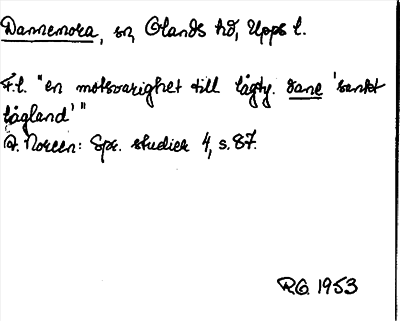 Dannemora, sn, Olands hd, Upps l.
F.l. "en motsvarighet till lågty. dane 'sankt
lågland'"
A. Noreen: Spr. studier 4, s. 87.
R.O. 1953